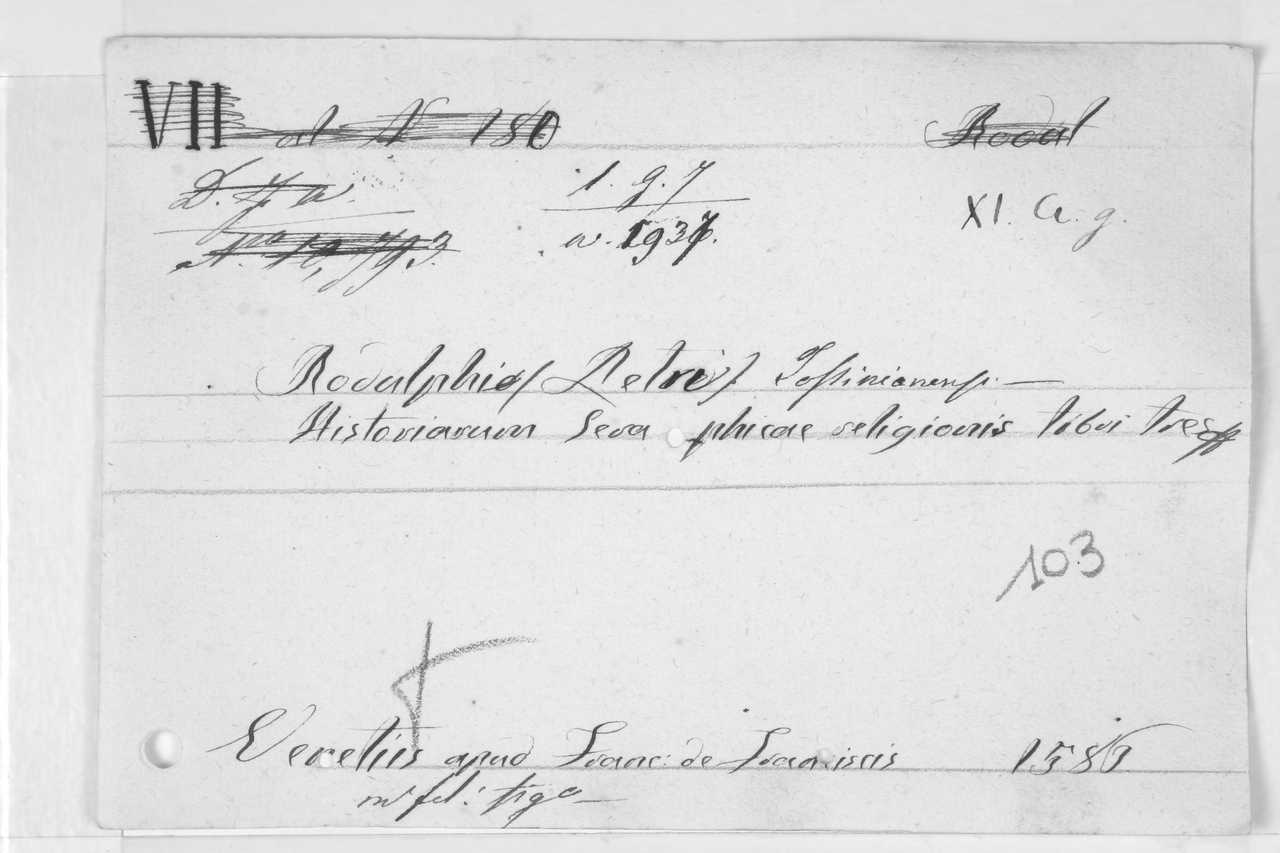 VII ad N 180 Rodal
D. II. a. 1. g. 7
a. 1937. XI. a. g.
Rodulphio/ (Petri) Tossinianensi —
Historiarum Sera phicae religionis libri tres
103
Venetiis apud Franc: de Franciscis 1586
in fol: figo